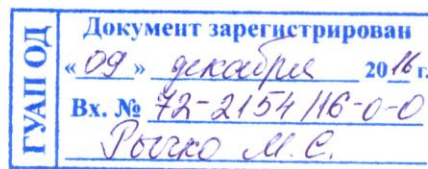 ГУАП ОД
Документ зарегистрирован
«09» декабря 2016 г.
Вх. № 72-2154/16-0-0
Рычко М.С.